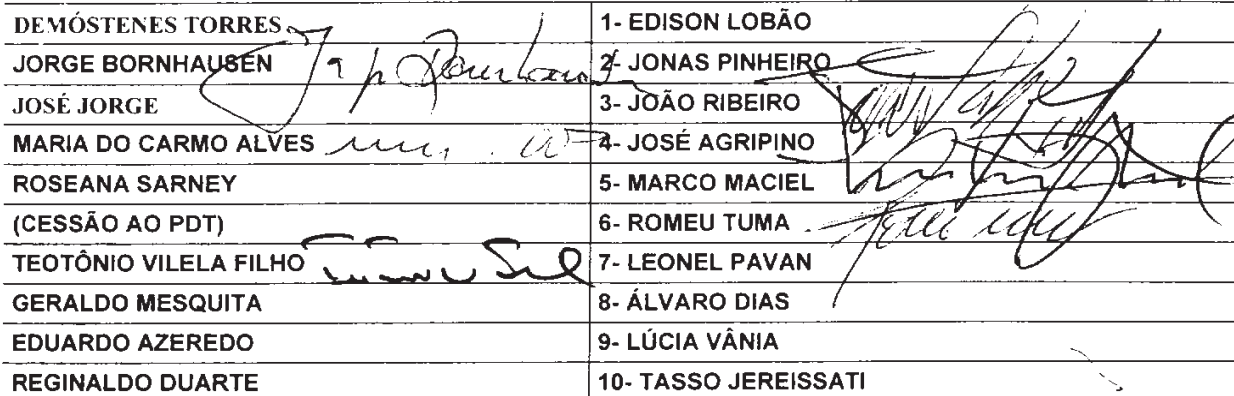 DEMÓSTENES TORRES 1- EDISON LOBÃO
JORGE BORNHAUSEN 2- JONAS PINHEIRO
JOSÉ JORGE 3- JOÃO RIBEIRO
MARIA DO CARMO ALVES 4- JOSÉ AGRIPINO
ROSEANA SARNEY 5- MARCO MACIEL
(CESSÃO AO PDT) 6- ROMEU TUMA
TEOTÔNIO VILELA FILHO 7- LEONEL PAVAN
GERALDO MESQUITA 8- ÁLVARO DIAS
EDUARDO AZEREDO 9- LÚCIA VÂNIA
REGINALDO DUARTE 10- TASSO JEREISSATI